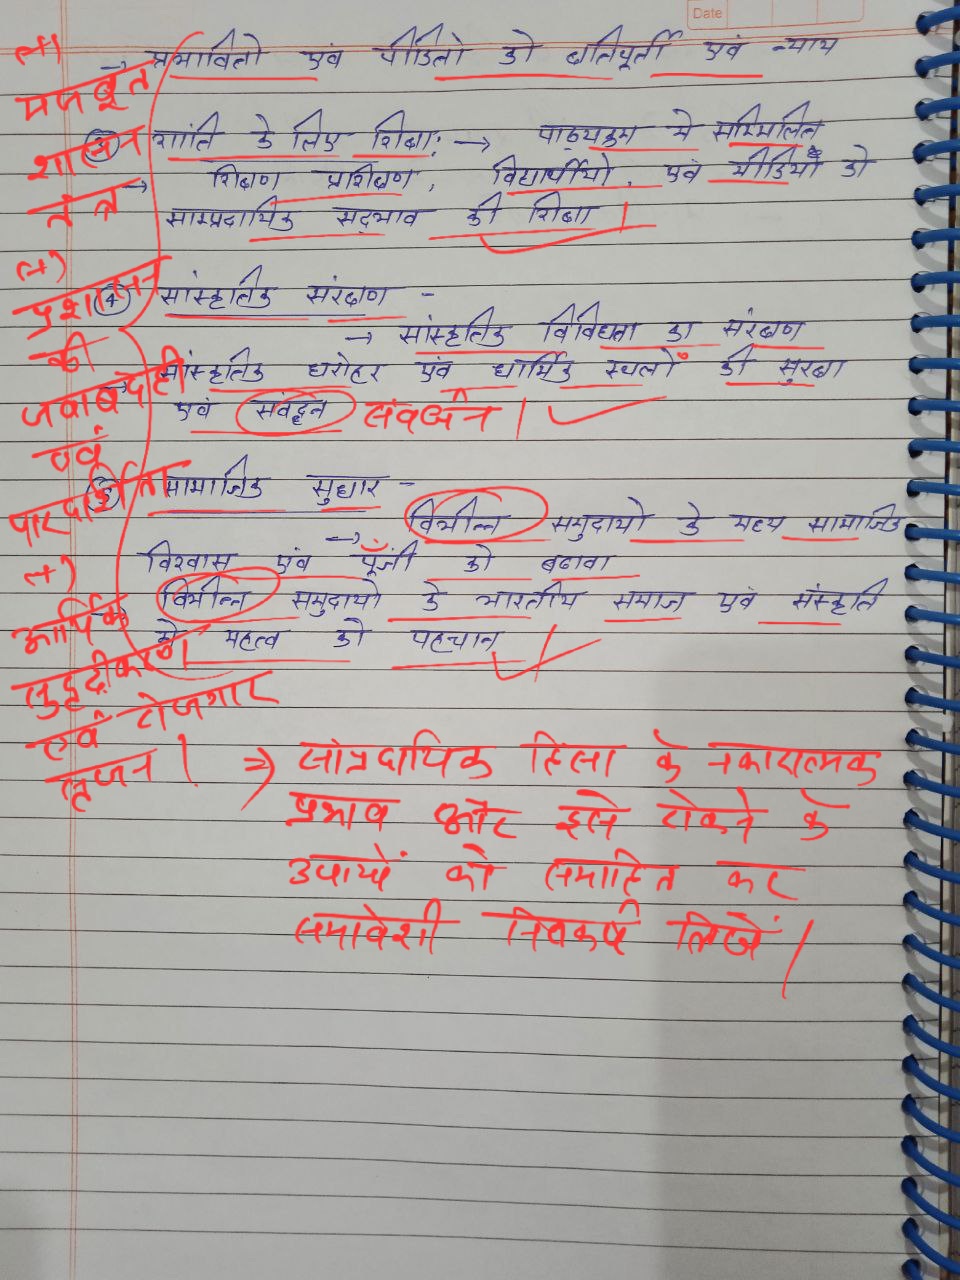 Date
→ प्रभावितो एवं पीडितो को क्षतिपूर्ती एवं न्याय
③ शांति के लिए शिक्षा: → पाठ्यक्रम मे सम्मिलित
→ शिक्षण प्रशिक्षण, विद्यार्थीयो, एवं मीडिया को
साम्प्रदायिक सद्भाव की शिक्षा।
④ सांस्कृतिक संरक्षण -
→ सांस्कृतिक विविधता का संरक्षण
→ सांस्कृतिक धरोहर एवं धार्मिक स्थलों की सुरक्षा
एवं संवर्द्धन संवर्धन।
⑤ सामाजिक सुधार -
→ विभीन्न समुदायो के मध्य सामाजिक
विश्वास एवं पूँजी को बढावा
→ विभीन्न समुदायो के भारतीय समाज एवं संस्कृति
मे महत्व को पहचान
(+)
मजबूत
शासन
तंत्र
(+)
प्रशासन
की
जवाबदेही
एवं
पारदर्शिता
(+)
आर्थिक
सुदृढ़ीकरण
एवं रोजगार
सृजन।
⇒ सांप्रदायिक हिंसा के नकारात्मक
प्रभाव और इसे रोकने के
उपायों को समाहित कर
समावेशी निष्कर्ष लिखें।